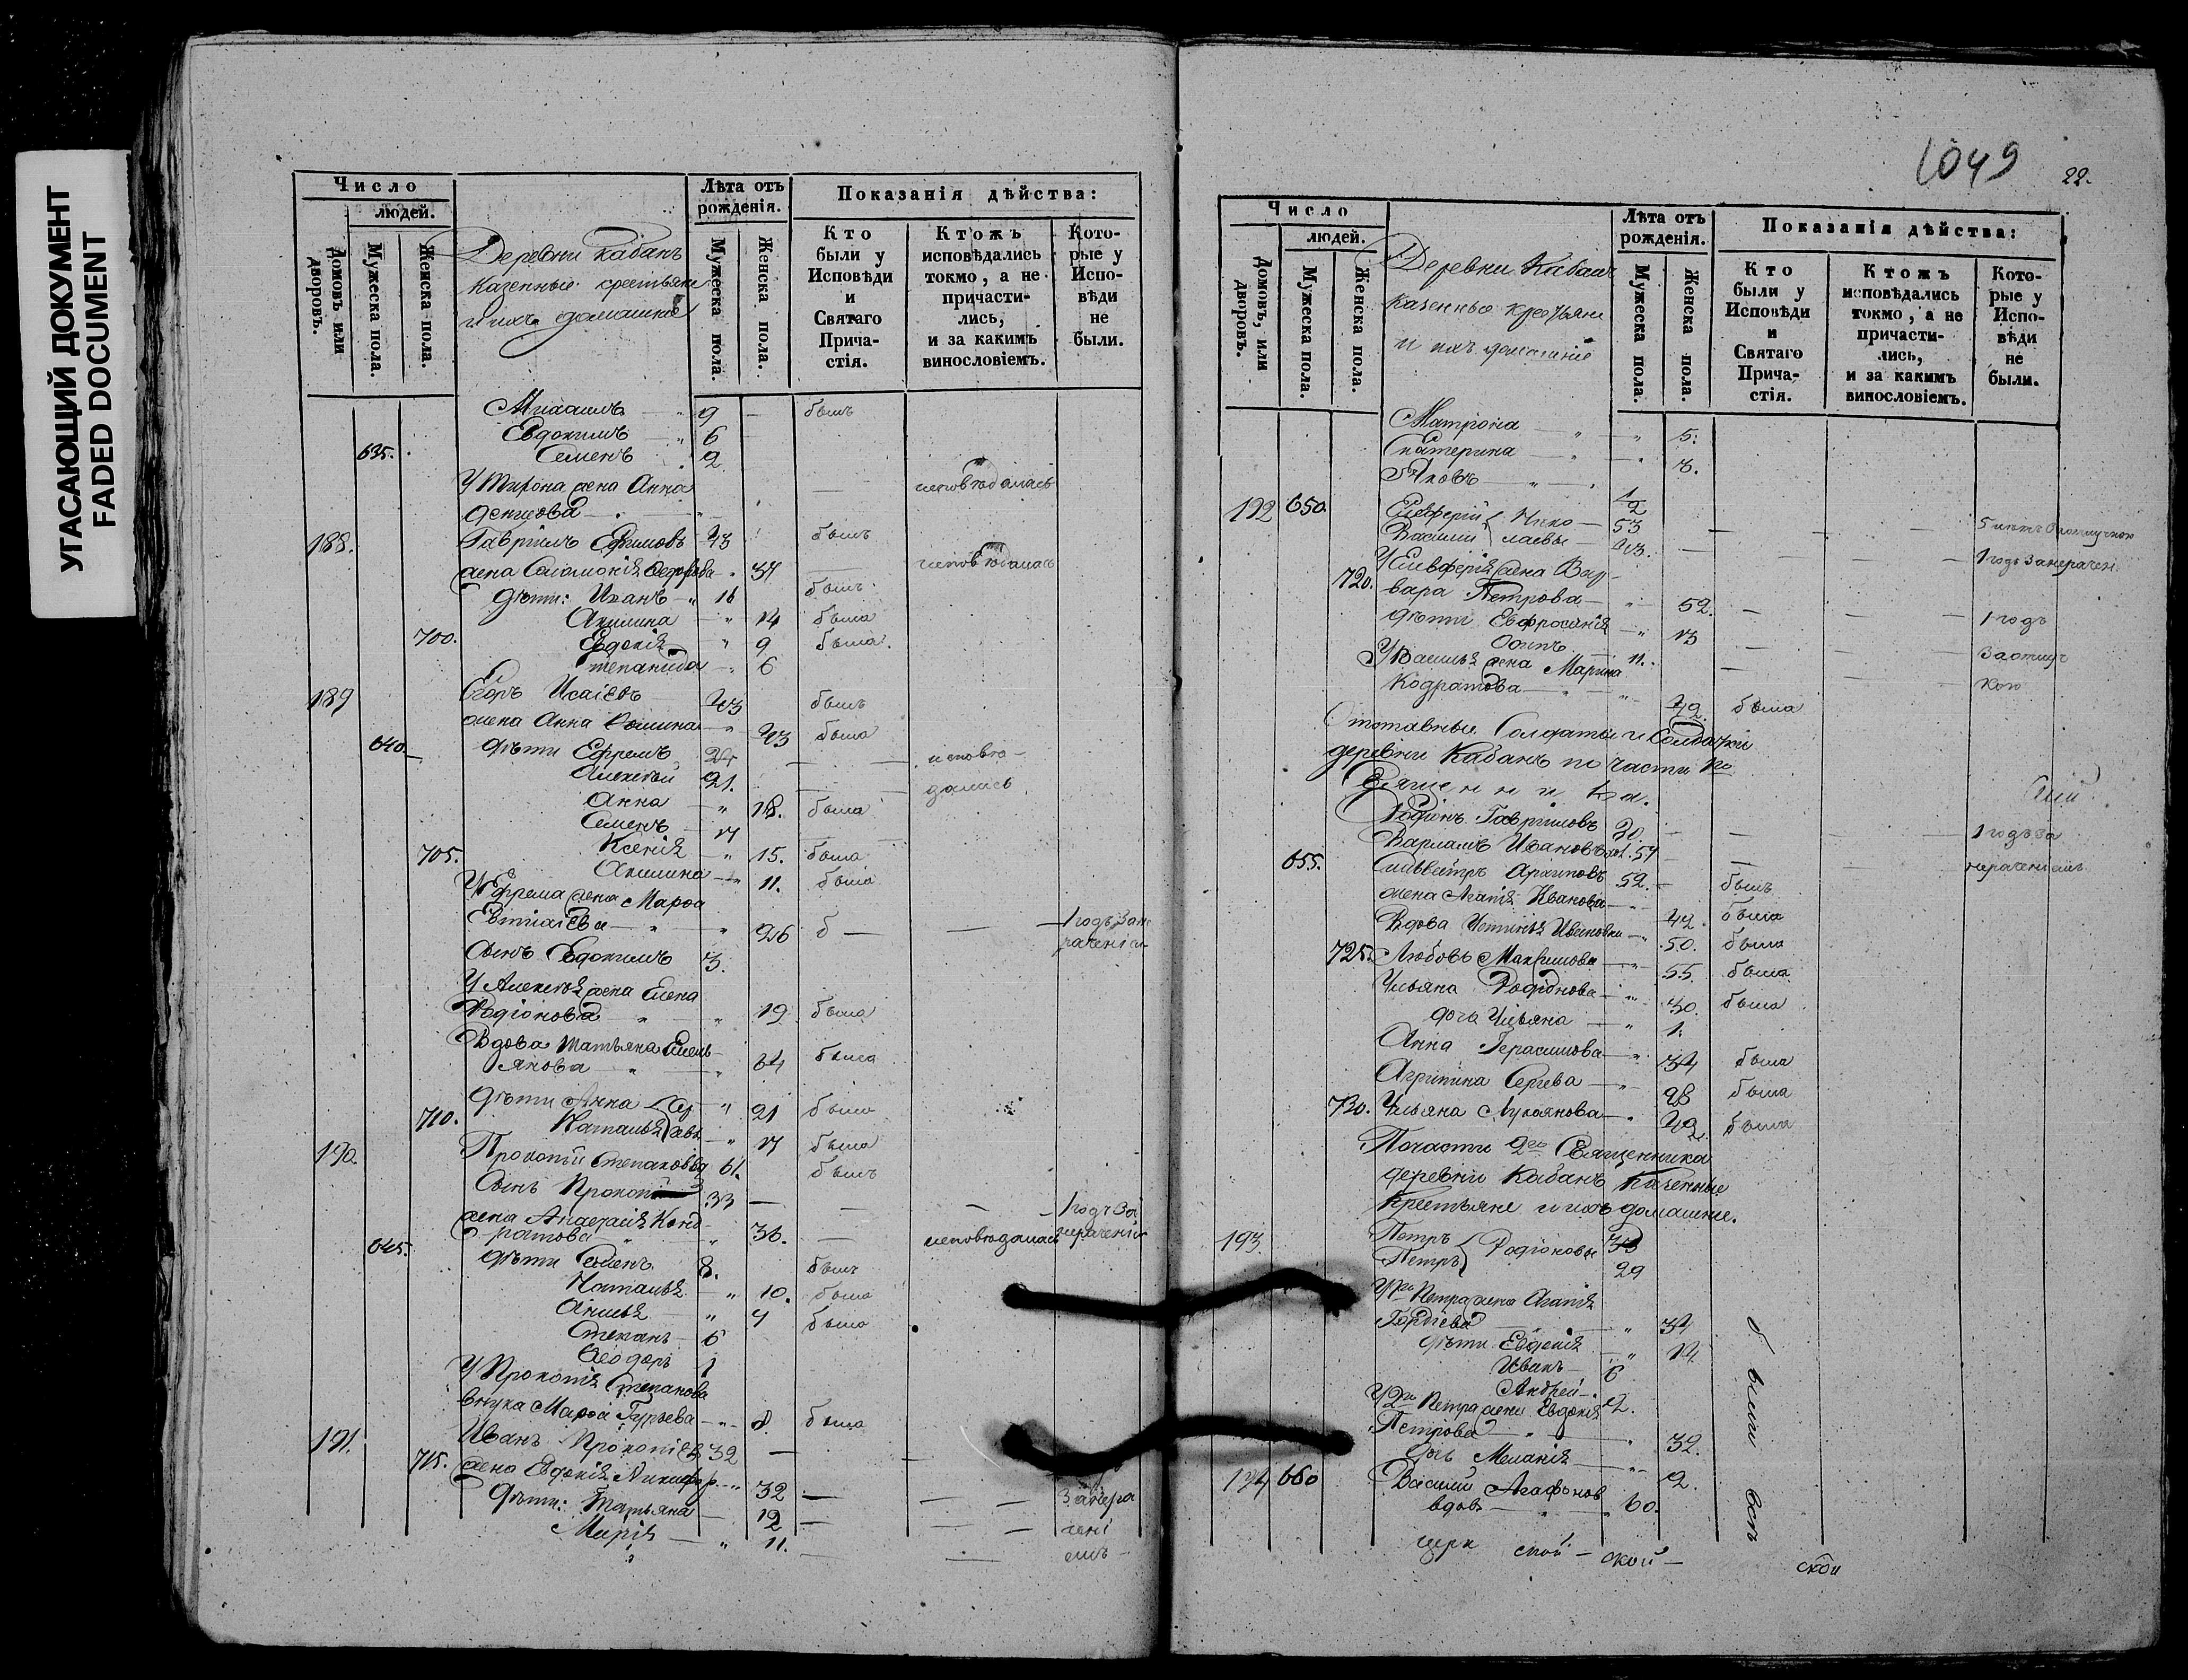 УГАСАЮЩИЙ ДОКУМЕНТ
FADED DOCUMENT
Число
людей.
Домовъ или дворовъ.
Мужеска пола.
Женска пола.
Деревни Кабанъ
казенные крестьяне
и ихъ домашніе
Лѣта отъ рожденія.
Мужеска пола.
Женска пола.
Показанія дѣйства:
Кто были у Исповѣди и Святаго Прича-стія.
Ктожъ исповѣдались токмо, а не причасти-лись, и за какимъ винословіемъ.
Кото-рые у Испо-вѣди не были.
Михаилъ 9 былъ
Евдокимъ 6
635. Семенъ 2
У Мирона жена Анна исповѣдалась
188. Гавріилъ Ефимовъ 43 былъ
жена Соломонія 37 исповѣдалась
дѣти: Иванъ 16 былъ
Акилина 14 была
700. Евдокія 9 была
Степанида 6
189 Егоръ Исаіевъ 43 былъ
жена Анна Фомина 43 была
640 дѣти Ефремъ исповѣ-
Алексѣй 21. дались
Анна 18. была
Семенъ 17
Ксенія 15. была
705. Акилина 11. была
У Ефрема жена Марѳа
26 б 1 годъ за не
раченіем
Сынъ Евдокимъ 3.
У Алексѣя жена Елена
Родіонова 19 была
Вдова Татьяна Емель-
янова 64 была
дѣти Анна 21 была
710. Наталья 17 была
190. Прокопій Степановъ 61. былъ
Сынъ Прокопій 33 1 годъ за
жена Анастасія Конд- нераченіем
ратова 36. исповѣдалась
645. дѣти Семенъ 8. былъ
Наталья 10. была
Анисья 7 была
Степанъ 6
Ѳеодоръ 1
У Прокопія Степанова
внука Марѳа Гурьева 8. была
191. Иванъ Прокопіевъ 32
715. жена Евдокія Никифор. 32
дѣти: Татьяна 12 за нера
Марія 11. чені
емъ
1049
22.
Число
людей.
Домовъ, или дворовъ.
Мужеска пола.
Женска пола.
Деревни Кабанъ
казенные крестьяне
и ихъ домашніе
Лѣта отъ рожденія.
Мужеска пола.
Женска пола.
Показанія дѣйства:
Кто были у Исповѣди и Святаго Прича-стія.
Ктожъ исповѣдались токмо, а не причасти-лись, и за какимъ винословіемъ.
Кото-рые у Испо-вѣди не были.
Матрона 5.
Екатерина 3.
Яковъ 1/2
192 650. Елевферій Нико- 53 5 лѣтъ за отлучкою
Василій лаевы 43. 1 годъ за нерачені
У Елевферія жена Вар-
720. вара Петрова 52. 1 годъ
дѣти Евфросинія 13
Осипъ 11. за отлуч
У Василья жена Марина кою
Кодратова 42. была
Отставные Солдаты и Солдатки
деревни Кабанъ по части 1го
Священника.
Родіонъ Гавриловъ 30 1 годъ за
Варлаамъ Ивановъ 57 нераченіемъ
655. Сильвестръ Архиповъ 52. былъ
жена Агапія Иванова 42 была
Вдова Устинія Иванова 50. была
725. Любовь Макимова 55 была
Ульяна Родіонова 30. была
дочь Ульяна 1.
Анна Герасимова 34 была
Агрипина Сергева 28 была
730. Ульяна Лукоянова 42 была
По части 2го Священника
деревни Кабанъ Казенные
Крестьяне и ихъ домашніе.
193. Петръ
Петръ Родіоновы 29
У 1го Петра жена Агапія
Гордѣева 34
дѣти Евдокія 14
Иванъ 6
Андрей 2.
У 2го Петра жена Евдокія
Петрова 32.
дочь Меланія 2.
194 660 Василій Агафонов
вдовъ 60.
были всѣ